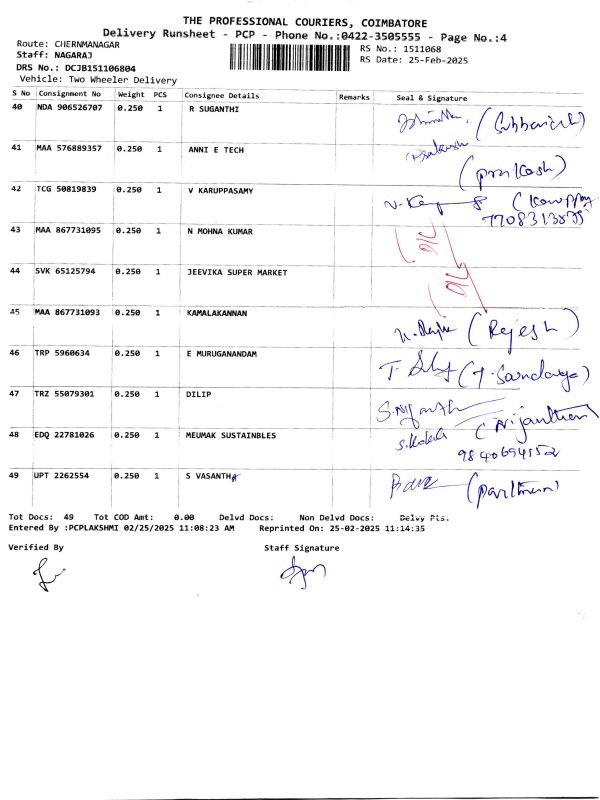 THE PROFESSIONAL COURIERS, COIMBATORE
Delivery Runsheet - PCP - Phone No.:0422-3505555 - Page No.:4
Route: CHERNMANAGAR
RS No.: 1511068
Staff: NAGARAJ
RS Date: 25-Feb-2025
DRS No.: DCJB151106804
Vehicle: Two Wheeler Delivery
S No Consignment No Weight PCS Consignee Details Remarks Seal & Signature
40 NDA 906526707 0.250 1 R SUGANTHI
41 MAA 576889357 0.250 1 ANNI E TECH
(prakash)
42 TCG 50819839 0.250 1 V KARUPPASAMY
43 MAA 867731095 0.250 1 N MOHNA KUMAR
44 SVK 65125794 0.250 1 JEEVIKA SUPER MARKET
45 MAA 867731093 0.250 1 KAMALAKANNAN
(Rejesh)
46 TRP 5960634 0.250 1 E MURUGANANDAM
47 TRZ 55079301 0.250 1 DILIP
48 EDQ 22781026 0.250 1 MEUMAK SUSTAINBLES
9840694552
49 UPT 2262554 0.250 1 S VASANTHA
Tot Docs: 49 Tot COD Amt: 0.00 Delvd Docs: Non Delvd Docs: Delvy Pts.
Entered By :PCPLAKSHMI 02/25/2025 11:08:23 AM Reprinted On: 25-02-2025 11:14:35
Verified By Staff Signature